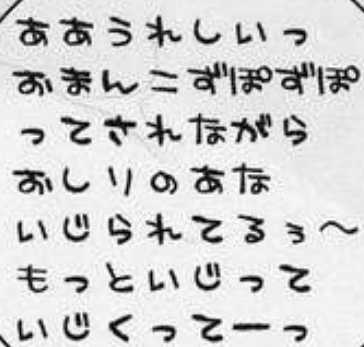 ああうれしいっ
おまんこずぽずぽ
ってされながら
おしりのあな
いじられてるぅ〜
もっといじって
いじくってーっ